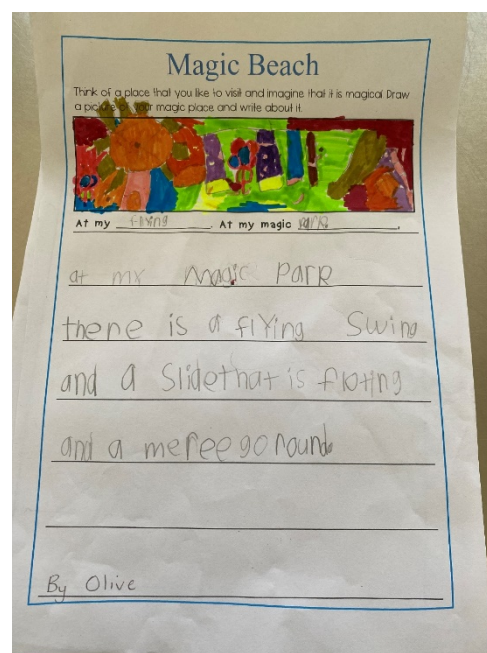 Magic Beach
Think of a place that you like to visit and imagine that it is magical. Draw
a picture of your magic place and write about it.
At my flying. At my magic park,
at my magic park
there is a flying Swing
and a Slidethat is floting
and a mereego round
By Olive